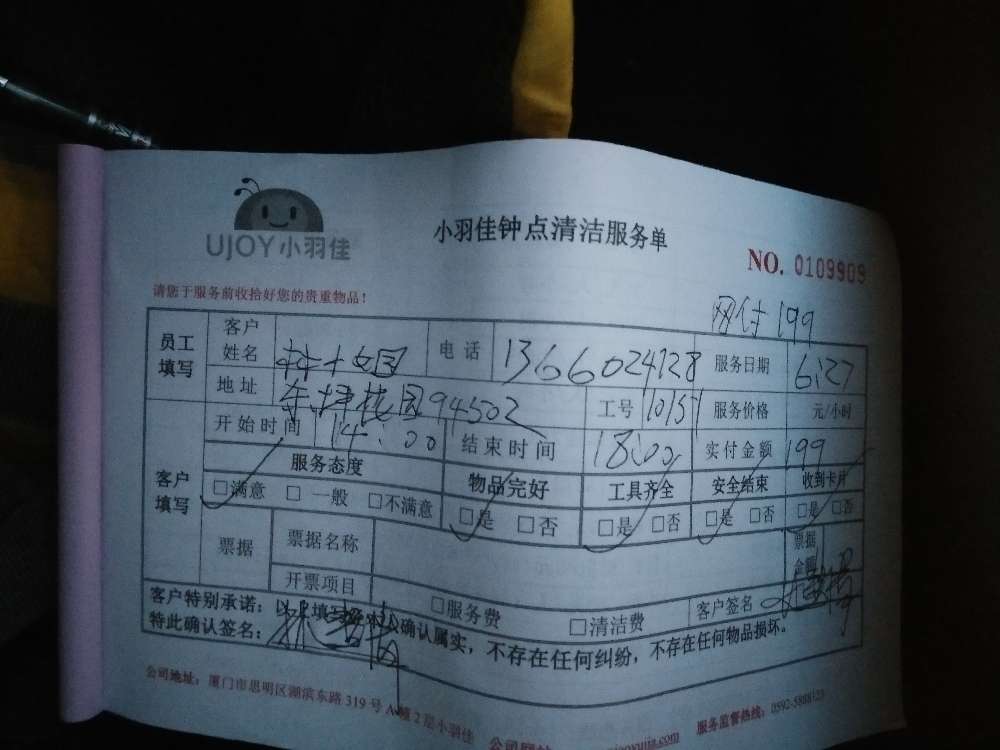 UJOY小羽佳
小羽佳钟点清洁服务单
NO. 0109909
请您于服务前收拾好您的贵重物品！
网付 199
员工填写 客户姓名 电话 13666024128 服务日期 6.27
地址 94502 工号 服务价格 元/小时
开始时间 14:00 结束时间 18:00 实付金额 199
客户填写 服务态度 物品完好 工具齐全 安全结束 收到卡片
□满意 □一般 □不满意 □是 □否 □是 □否 □是 □否 □是 □否
票据 票据名称 票据金额
开票项目 □服务费 □清洁费 客户签名
客户特别承诺：以上填写 确认属实，不存在任何纠纷，不存在任何物品损坏。
特此确认签名：
公司地址：厦门市思明区湖滨东路 319 号 A 幢 2 层小羽佳 公司网址 服务监督热线：0592-5888123